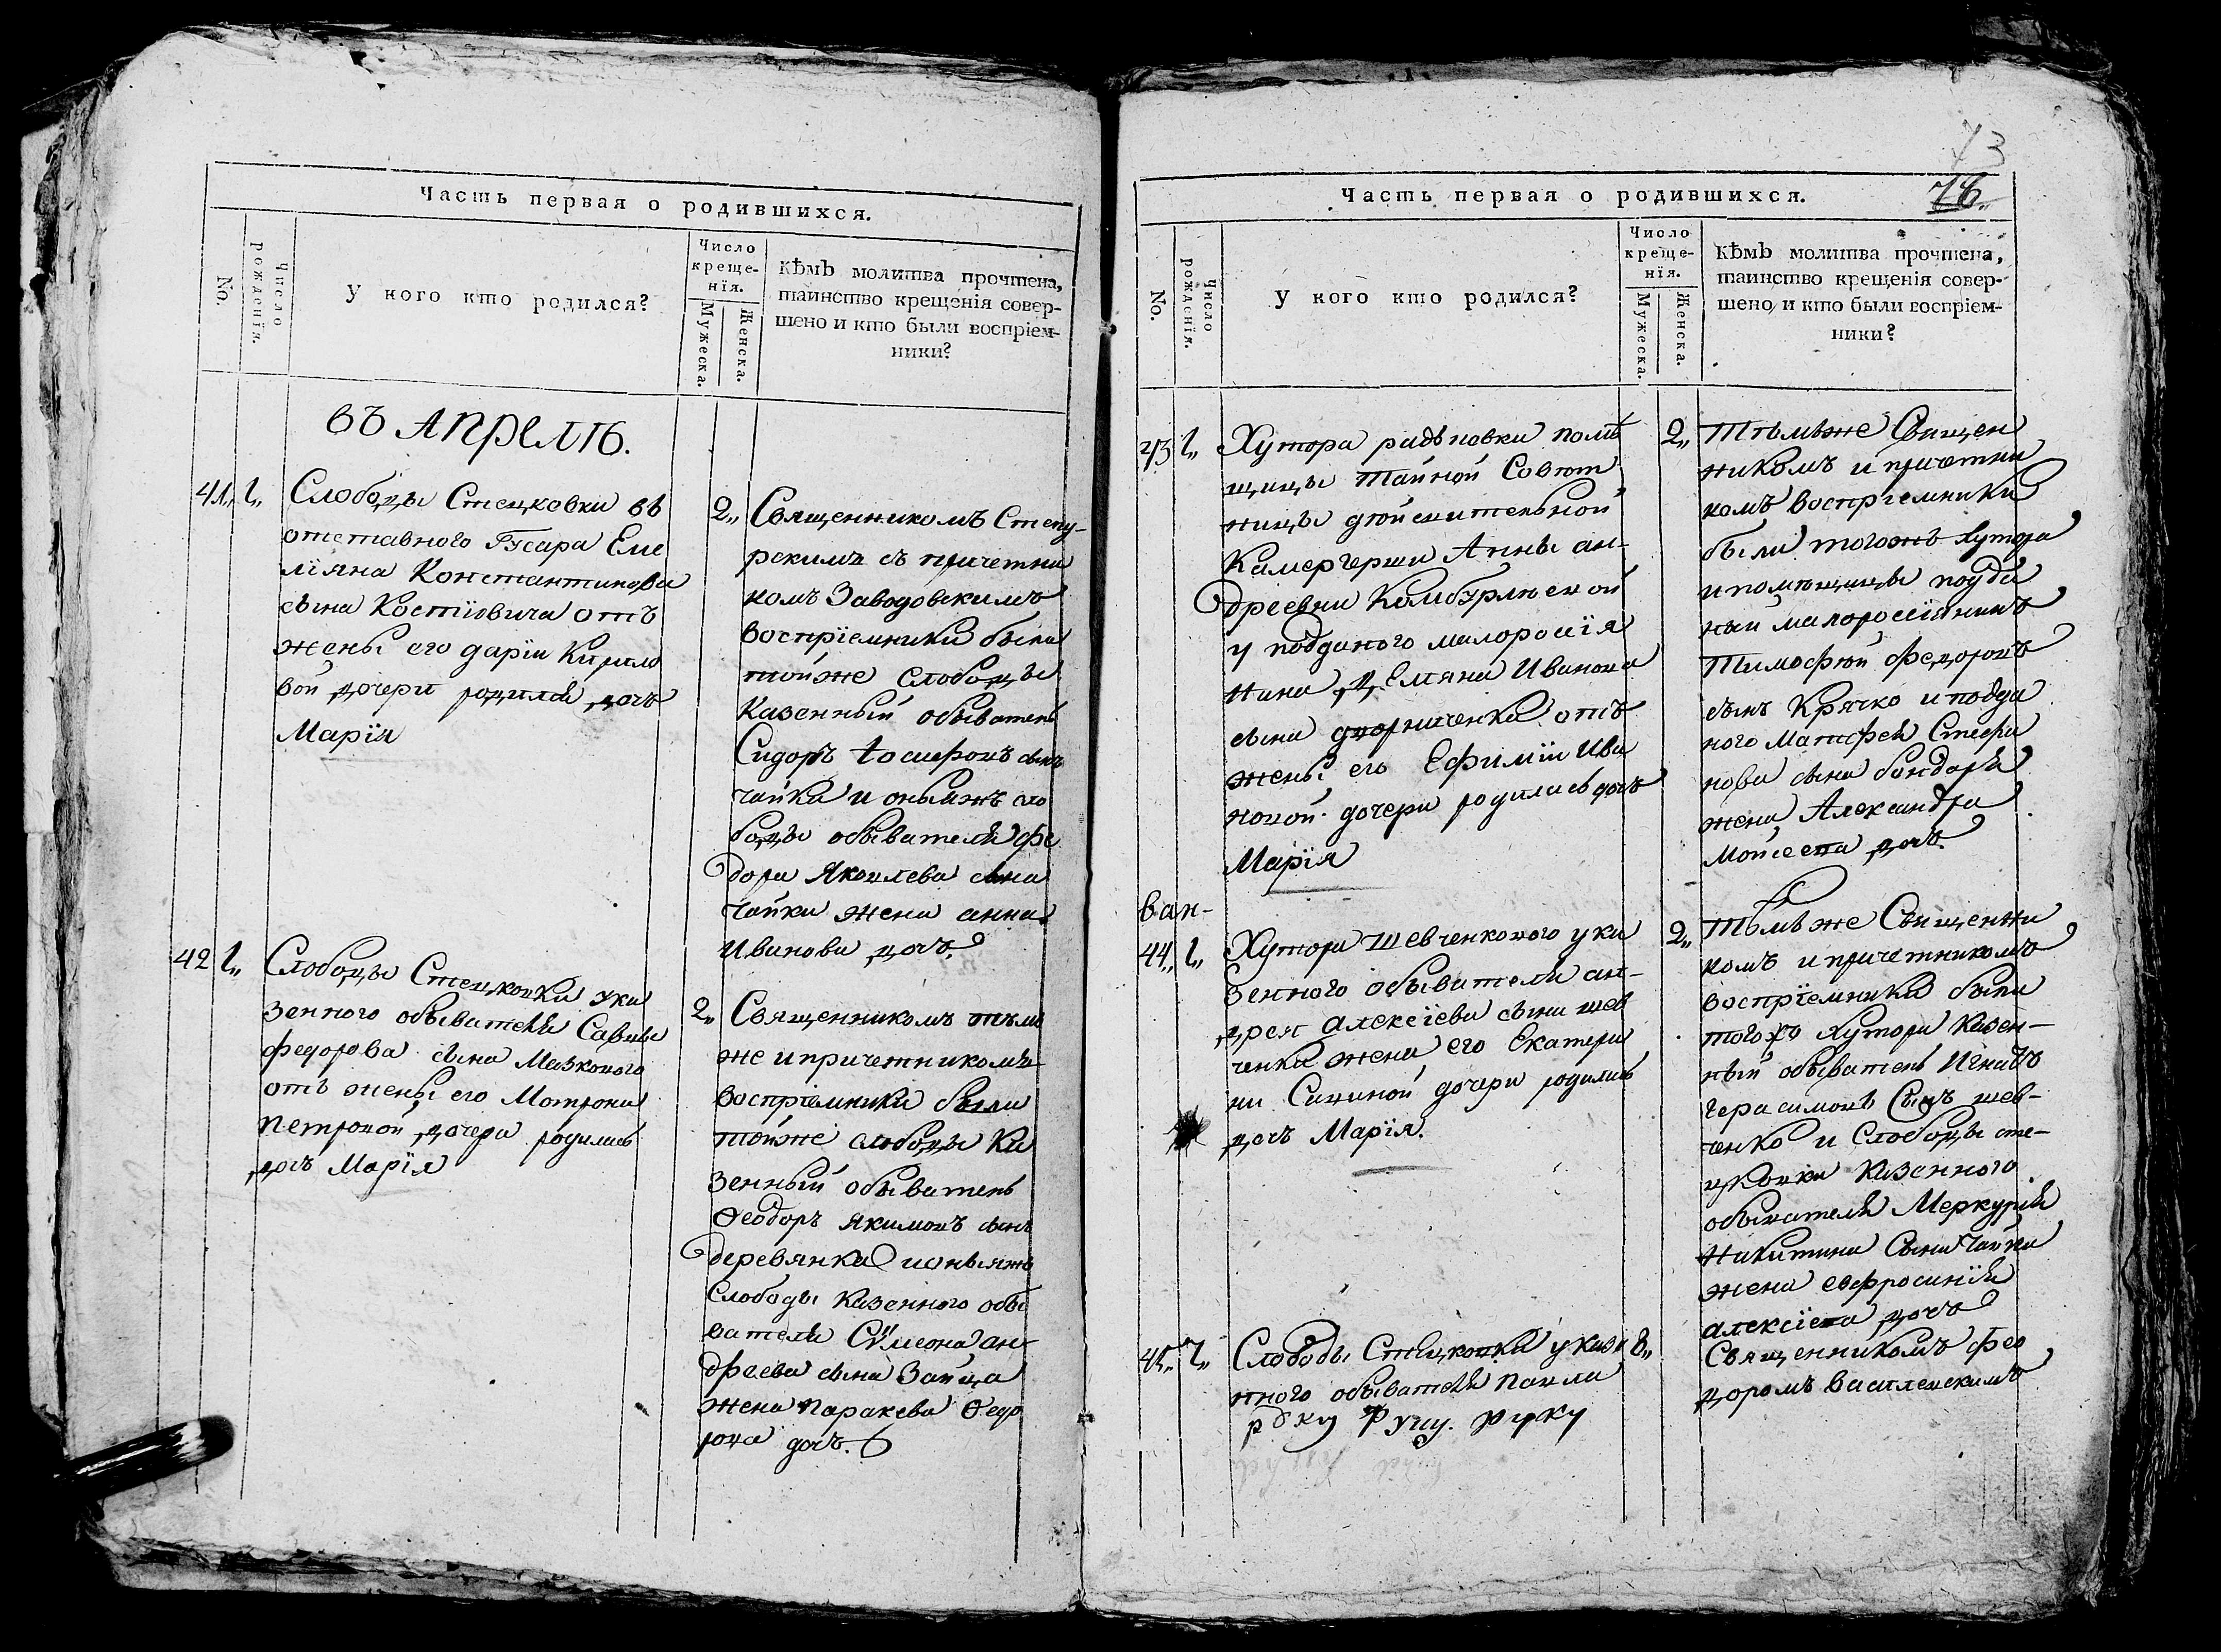 Часть первая о родившихся.
No.
Число рожденїя.
У кого кто родился?
Число
креще-
нїя.
Мужеска.
Женска.
Кѣмъ молитва прочтена,
таинство крещенїя совер-
шено и кто были воспрїем-
ники?
въ Апрелѣ.
41 1
Слободы Стецковки въ
отставного Гусара Еме
лїяна Константинова
сына Костїовича отъ
жены его дарїи Кирило
вой дочери родилась дочь
Марїя
2 Священникомъ Степу-
рскимъ съ причетни
комъ Заводовскимъ
воспрїемники были
тойже слободы
Казенный обыватель
Сидоръ Іосифовъ сынъ
Чайка и оныяжъ сло
боды обывателя фе
дора Яковлева сына
Чайки жена анна
Иванова дочь.
42 1
Слободы Стецковки ука
зенного обывателя Саввы
федорова сына Мазкового
отъ жены его Мотроны
петровой дочери родилась
дочь Марїя
2 Священникомъ тѣмъ
же и причетникомъ
воспрїемники были
тойже слободы Ка
зенный обыватель
Ѳеодоръ Якимовъ сынъ
деревянка и оныяжъ
Слободы Казенного обы
вателя Сѷмеона ан-
дреева сына Зайца
жена параскева Ѳедо
рова дочь.
73
Часть первая о родившихся.
No.
Число рожденїя.
У кого кто родился?
Число
креще-
нїя.
Мужеска.
Женска.
Кѣмъ молитва прочтена,
таинство крещенїя совер-
шено, и кто были воспрїем-
ники?
43 1
Хутора радьковки помѣ
щицы тайной Совѣт
ницы дѣйсвителной
Камергерши Анны ан-
дреевны Комбурлѣской
у подданого малоросїя
нина Демяна Иванова
сына дворниченка отъ
жены его Ефимїи Ива
новой дочери родилась дочь
Марїя
2 Тѣмъже Священ
никомъ и причетни
комъ воспрїемники
были тогожъ хутора
и помѣщицы подда
ный малоросїянинъ
Тимофѣй федоровъ
сынъ Крячко и подда
ного Матфея Стефа
нова сына бондаря
жена Александра
Мойсеева дочь.
44 1
Хутора Шевченкового ука
зенного обывателя ан-
дрея алексїева сына шев
ченка жена его Екатери
ни Савиной дочери родилась
дочь Марїя.
2 Тѣмъже Священни
комъ и причетникомъ
воспрїемники были
тогожъ хутора Казен-
ный обыватель Игнатъ
герасимовъ Сынъ шев-
ченко и Слободы сте-
цковки Казенного
обывателя Меркурїя
Никитина Сына Чайки
жена евфросинїя
алексїева дочь
45 7
Слободы Стецковки у казе
нного обывателя павла
8
Священникомъ фео
доромъ василевскимъ